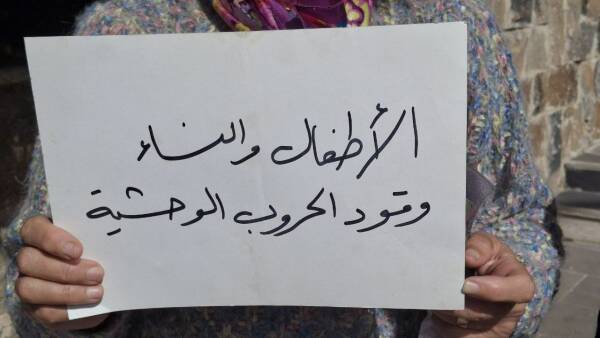 الأطفال والنساء
وقود الحروب الوحشية